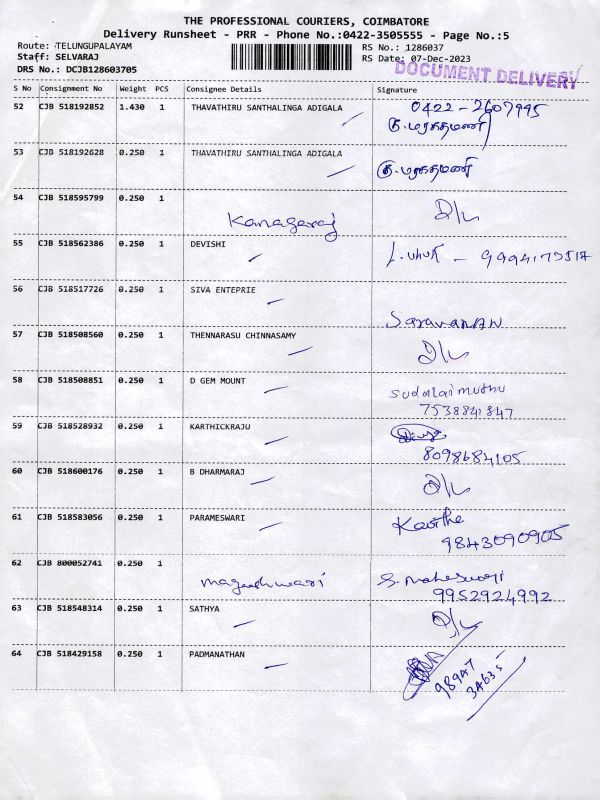 THE PROFESSIONAL COURIERS, COIMBATORE
Delivery Runsheet - PRR - Phone No.:0422-3505555 - Page No.:5
Route: TELUNGUPALAYAM
Staff: SELVARAJ
DRS No.: DCJB128603705
RS No.: 1286037
RS Date: 07-Dec-2023
DOCUMENT DELIVERY
S No Consignment No Weight PCS Consignee Details Signature
52 CJB 518192852 1.430 1 THAVATHIRU SANTHALINGA ADIGALA 0422-2607995
கு.மரகதமணி
53 CJB 518192628 0.250 1 THAVATHIRU SANTHALINGA ADIGALA
கு.மரகதமணி
54 CJB 518595799 0.250 1
Kanagaraj D/L
55 CJB 518562386 0.250 1 DEVISHI
56 CJB 518517726 0.250 1 SIVA ENTEPRIE
Saravanan
57 CJB 518508560 0.250 1 THENNARASU CHINNASAMY
D/L
58 CJB 518508851 0.250 1 D GEM MOUNT Sudalaimuthu
7538841847
59 CJB 518528932 0.250 1 KARTHICKRAJU
8098684105
60 CJB 518600176 0.250 1 B DHARMARAJ
D/L
61 CJB 518583056 0.250 1 PARAMESWARI Kavitha
9843090905
62 CJB 800052741 0.250 1
Mageshwari S. Maheswari
9952924992
63 CJB 518548314 0.250 1 SATHYA D/L
64 CJB 518429158 0.250 1 PADMANATHAN
98947
34635